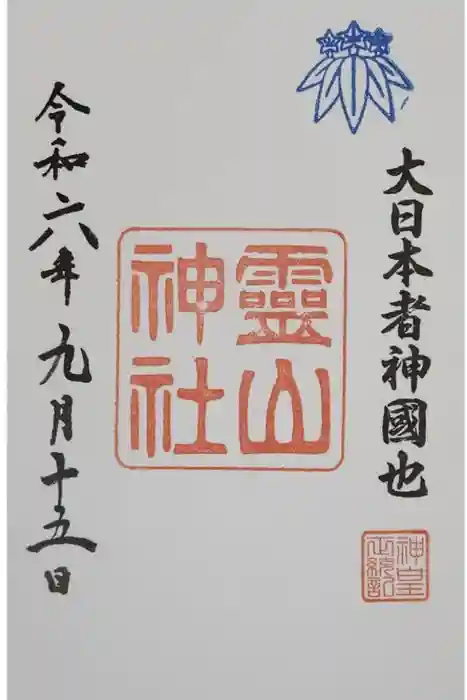 大日本者神國也
神皇正統記
靈山
神社
令和六年九月十五日